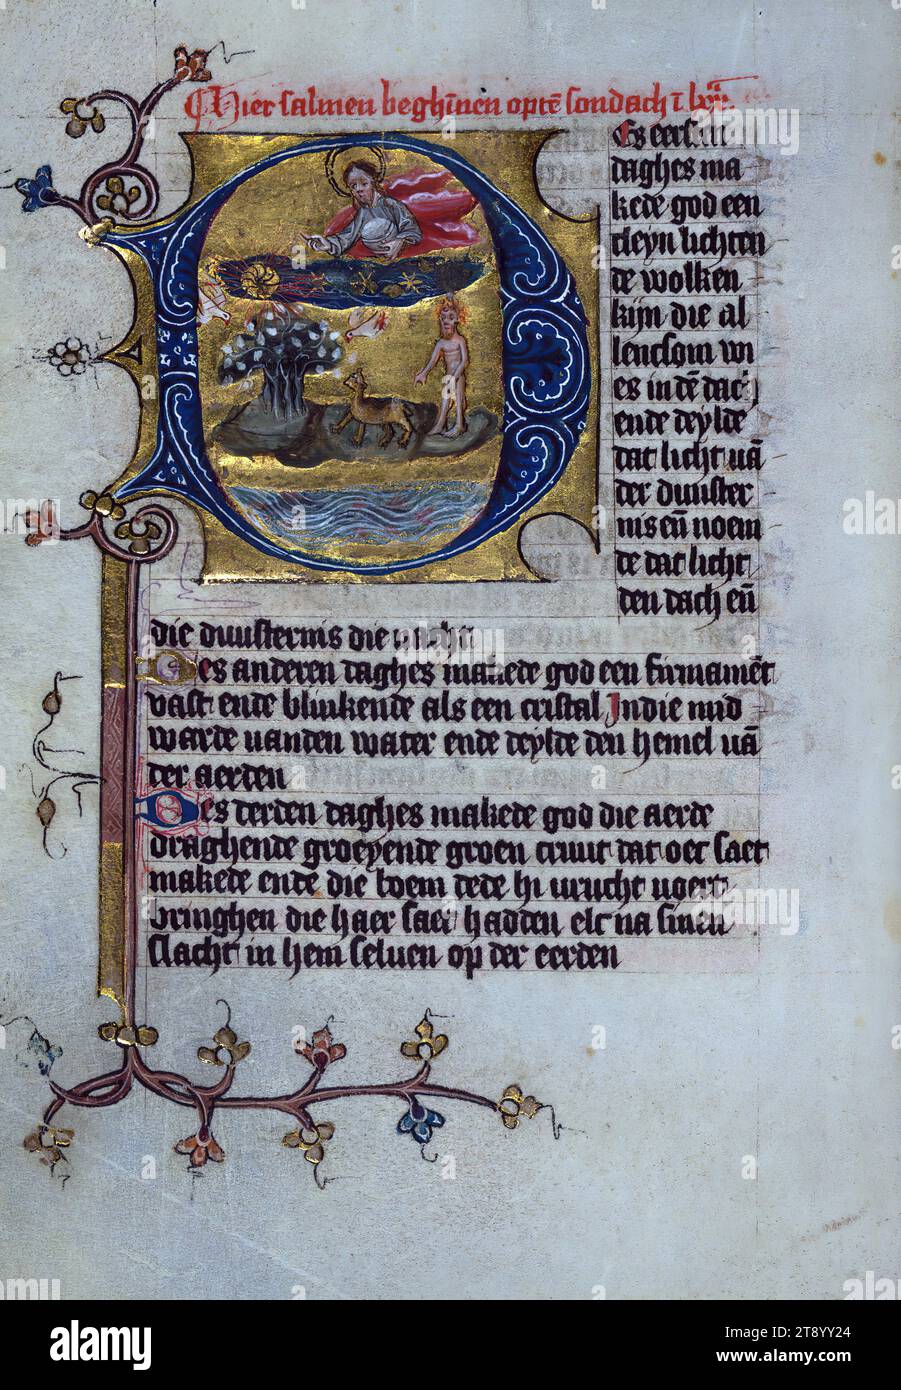 Hier salmen beghinen optē sondach ī
Es eersten
daghes ma
kede god een
cleyn lichten
de wolken
kijn die al
lencsom vvi
es in dē dach
ende deylde
dat licht uā
der duuster
nis eñ noem
de dat licht
den dach eñ
die duusternis die nacht
Des anderen daghes makede god een firmamēt
vast ende blinkende als een cristal In die mid
warde vanden water ende deylde den hemel uā
der aerden
Des derden daghes makede god die aerde
draghende groeyende groen cruut dat oec saet
makede ende die boem dede hi vrucht voert
bringhen die haer saet hadden elc na sinen
slacht in hem seluen op der eerden
alamy
Image ID: 2T8YY24
www.alamy.com